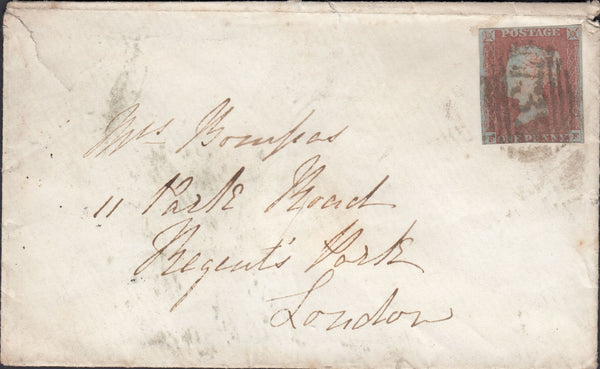 POSTAGE
Mrs Bompas
11 Park Road
Regent's Park
London